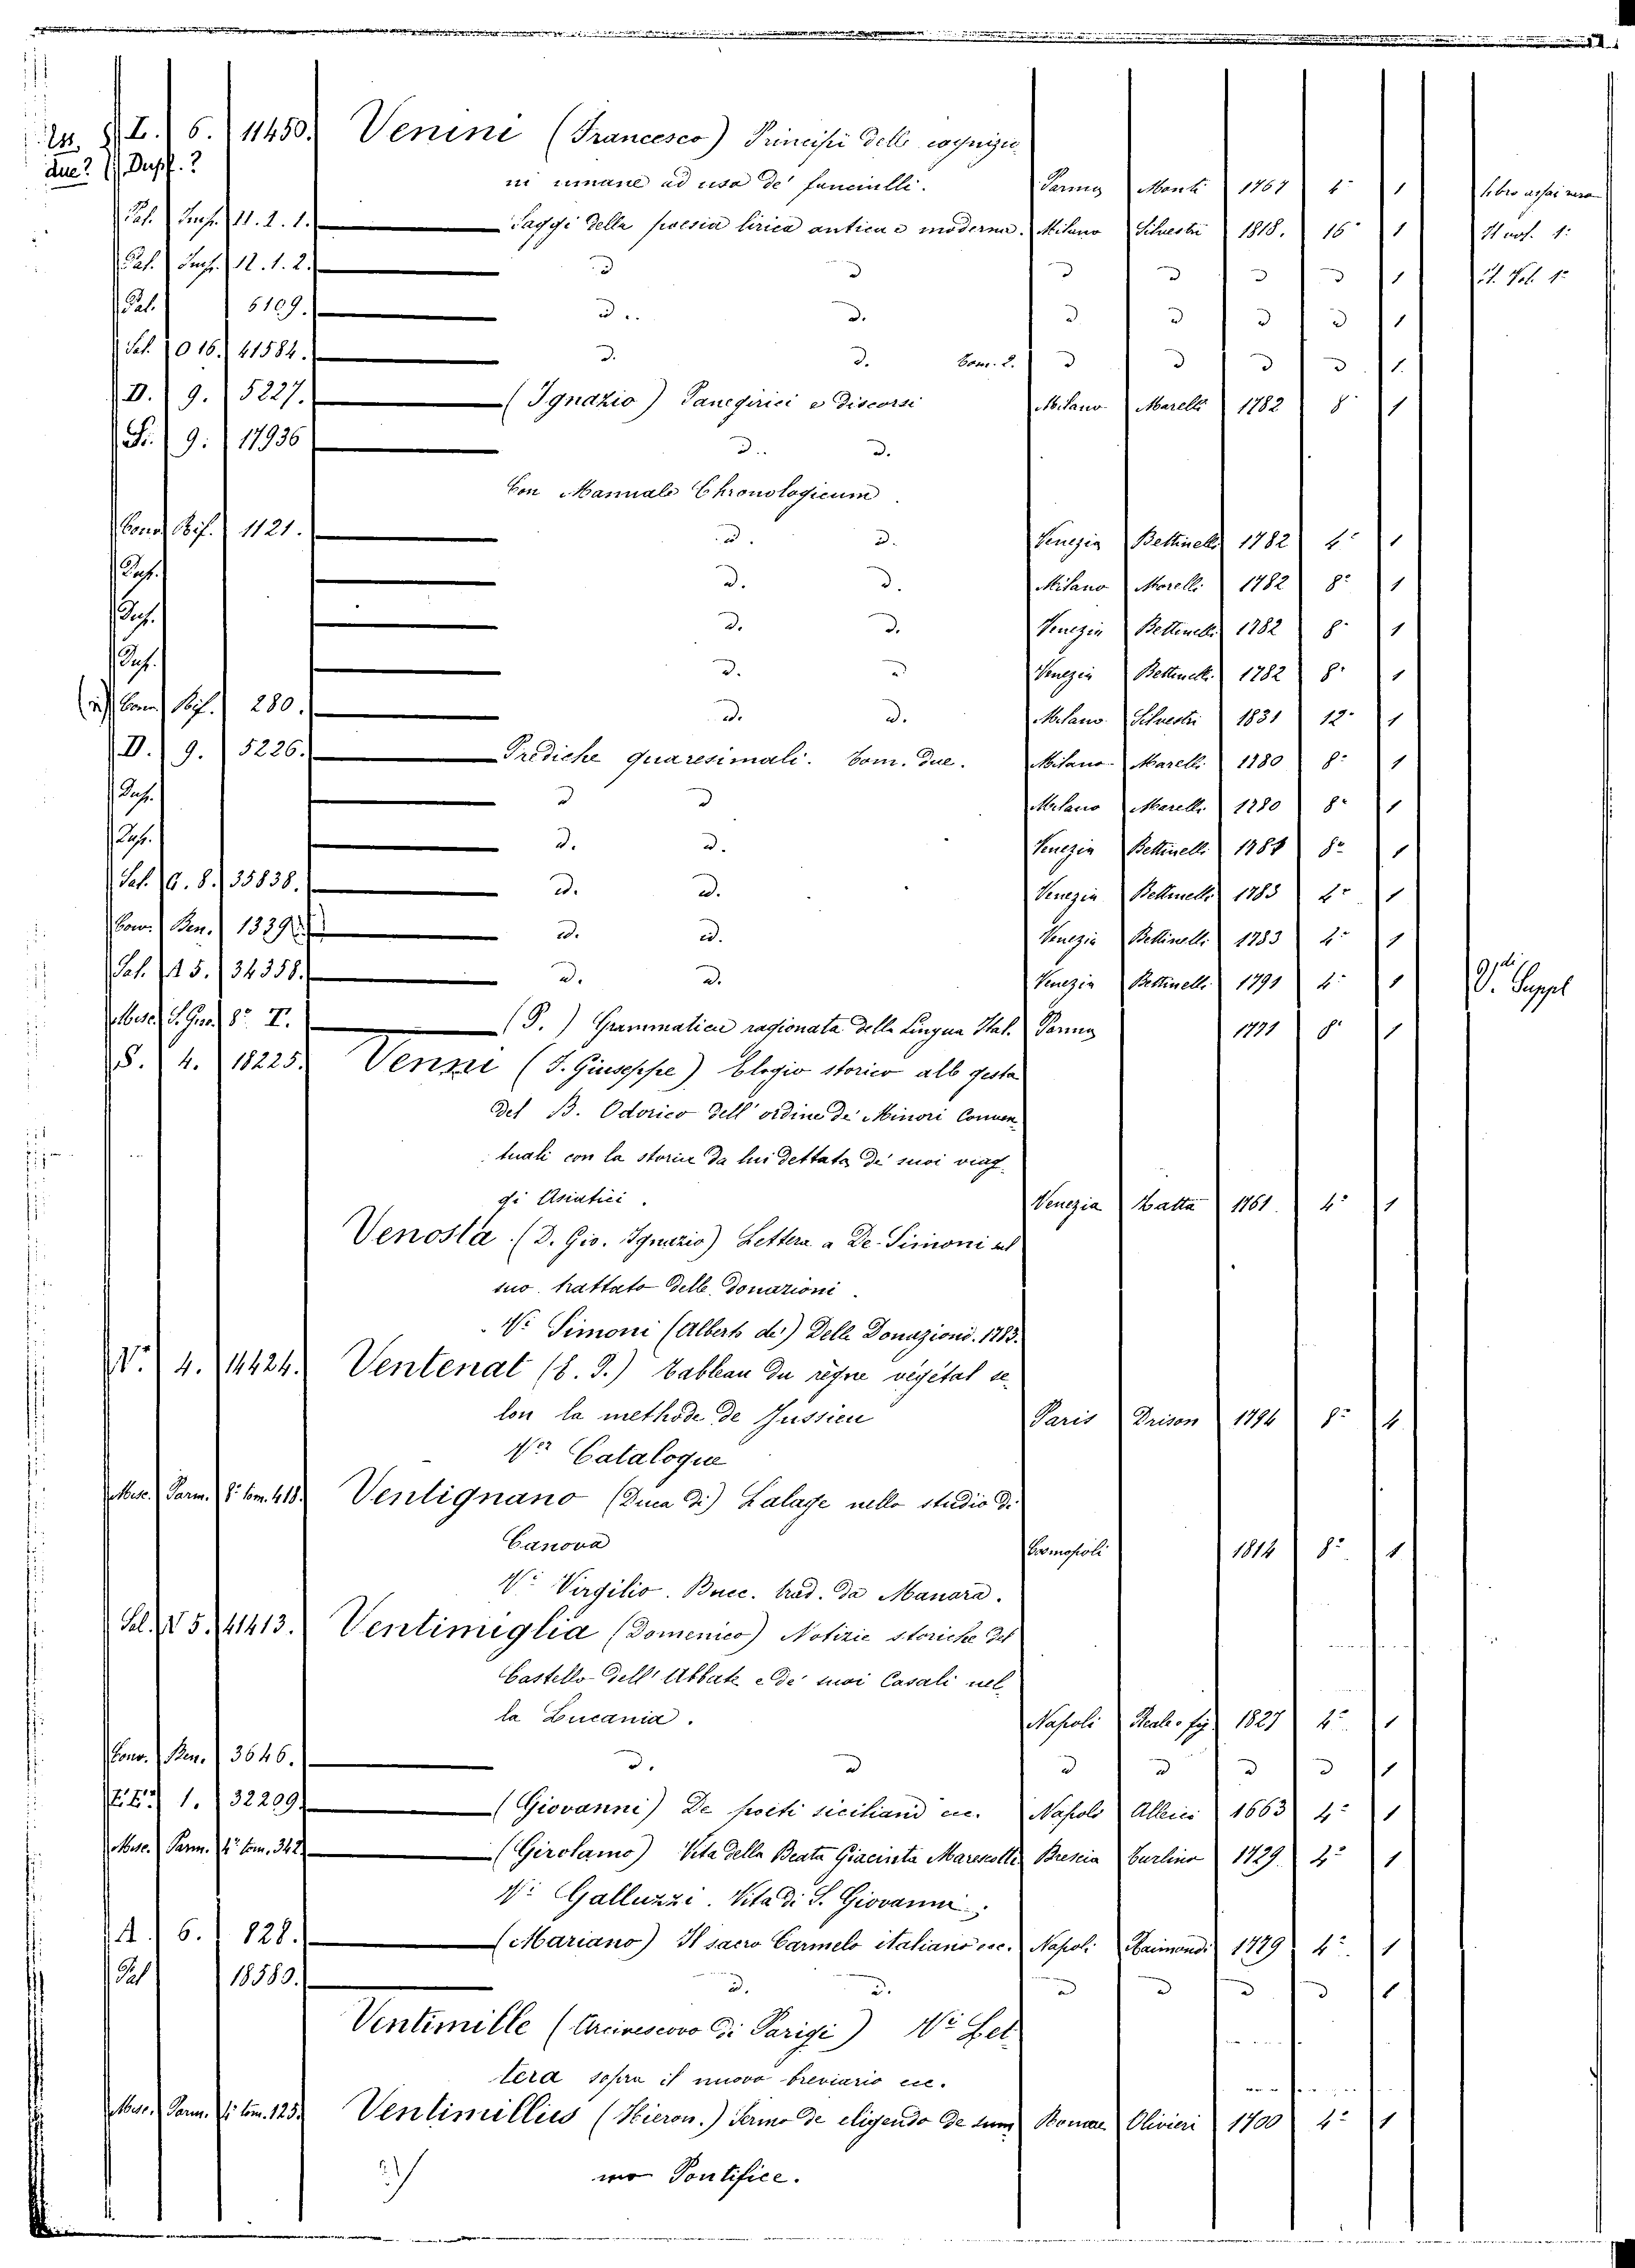 L. 6. 11450. Venini (Francesco) Principii delle cognizio
due? Dupl.?
ni umane ad uso de' fanciulli. Parma Monti 1764 1 libro assai raro
Pal. 11. 2. 1. Saggi della poesia lirica antica e moderna. Milano Silvestri 1818. 16° 1
Pal. 12. 1. 2. d d d d d d 1 Vol. 1°
Pal. 6109. d. d. d d d d 1
Sal. O 16. 41584. d. d. Tom. 2. d d d d 1.
D. 9. 5227. (Ignazio) Panegirici e discorsi Milano Marelli 1782 8° 1
9. 17936 d. d.
Con Manuale Chronologicum
Conv. Bif. 1121. d. d. Venezia Bettinelli 1782 4° 1
Dup. d. d. Milano Morelli 1782 8° 1
Dup. d. d. Venezia Bettinelli 1782 8° 1
Dup. d. d Venezia Bettinelli 1782 8° 1
Conv. Bif. 280. d. d. Milano Silvestri 1831 12° 1
D. 9. 5226. Prediche quaresimali. Tom. due. Milano Marelli 1780 8° 1
Dup. d d Milano Marelli 1780 8° 1
Dup. d. d. Venezia Bettinelli 8° 1
Sal. G. 8. 35838. d. d. Venezia Bettinelli 1783 4° 1
Conv. Ben. 1339 d. d. Venezia Bettinelli 1783 4° 1
Sal. A 5. 34358. d. d. Venezia Bettinelli 1791 4° 1 V. Suppl
Misc. 8° T. (P.) Grammatica ragionata della Lingua Ital. Parma 8° 1
S. 4. 18225. Venni (P. Giuseppe) Elogio storico alle gesta
del B. Odorico dell' ordine de' Minori Conven
tuali con la storia da lui dettata de' suoi viag
gi Asiatici. Venezia Zatta 1761. 4° 1
Venosta (D. Gio. Ignazio) Lettera a De-Simoni sul
suo trattato delle donazioni.
V° Simoni (Alberto de') Delle Donazioni. 1783.
V. 4. 14424. Ventenat (E. P.) Tableau du règne végétal se
lon la methode de Jussieu Paris Drison 1794 8° 4
V° Catalogue
Misc. Parm. 8° tom. 418. Ventignano (Duca di) Lalage nello studio di
Canova Cosmopoli 1814 8° 1
V° Virgilio. Bucc. trad. da Manara.
Sal. V 5. 41413. Ventimiglia (Domenico) Notizie storiche del
Castello dell' Abbate e de' suoi Casali nel
la Lucania. Napoli 1827 4° 1
Conv. Ben. 3646. d. d d d d d 1
1. 32209. (Giovanni) De' poeti siciliani ec. Napoli 1663 4° 1
Misc. Parm. 4° tom. 342. (Girolamo) Vita della Beata Giacinta Marescotti Brescia Turlino 1729. 4° 1
V° Galluzzi. Vita di S. Giovanni.
A. 6. 828. (Mariano) Il sacro Carmelo italiano ecc. Napoli Raimondi 1779 4° 1
Pal 18583. d. d. d d d d 1
Ventimille (Arcivescovo di Parigi) V° Let
tera sopra il nuovo breviario ec.
Misc. Parm. 4° tom. 123. Ventimillius (Hieron.) Sermo de eligendo de sum Romae Olivieri 1700 4° 1
mo Pontifice.